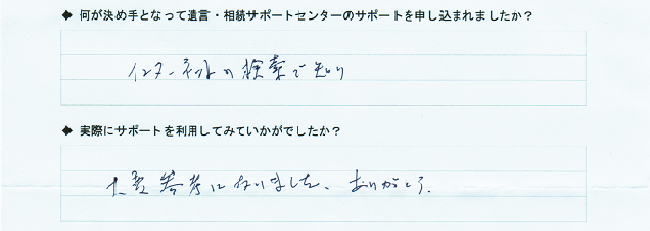 ◆ 何が決め手となって遺言・相続サポートセンターのサポートを申し込まれましたか？
インターネットの検索で知り
◆ 実際にサポートを利用してみていかがでしたか？
大変参考になりました、ありがとう.